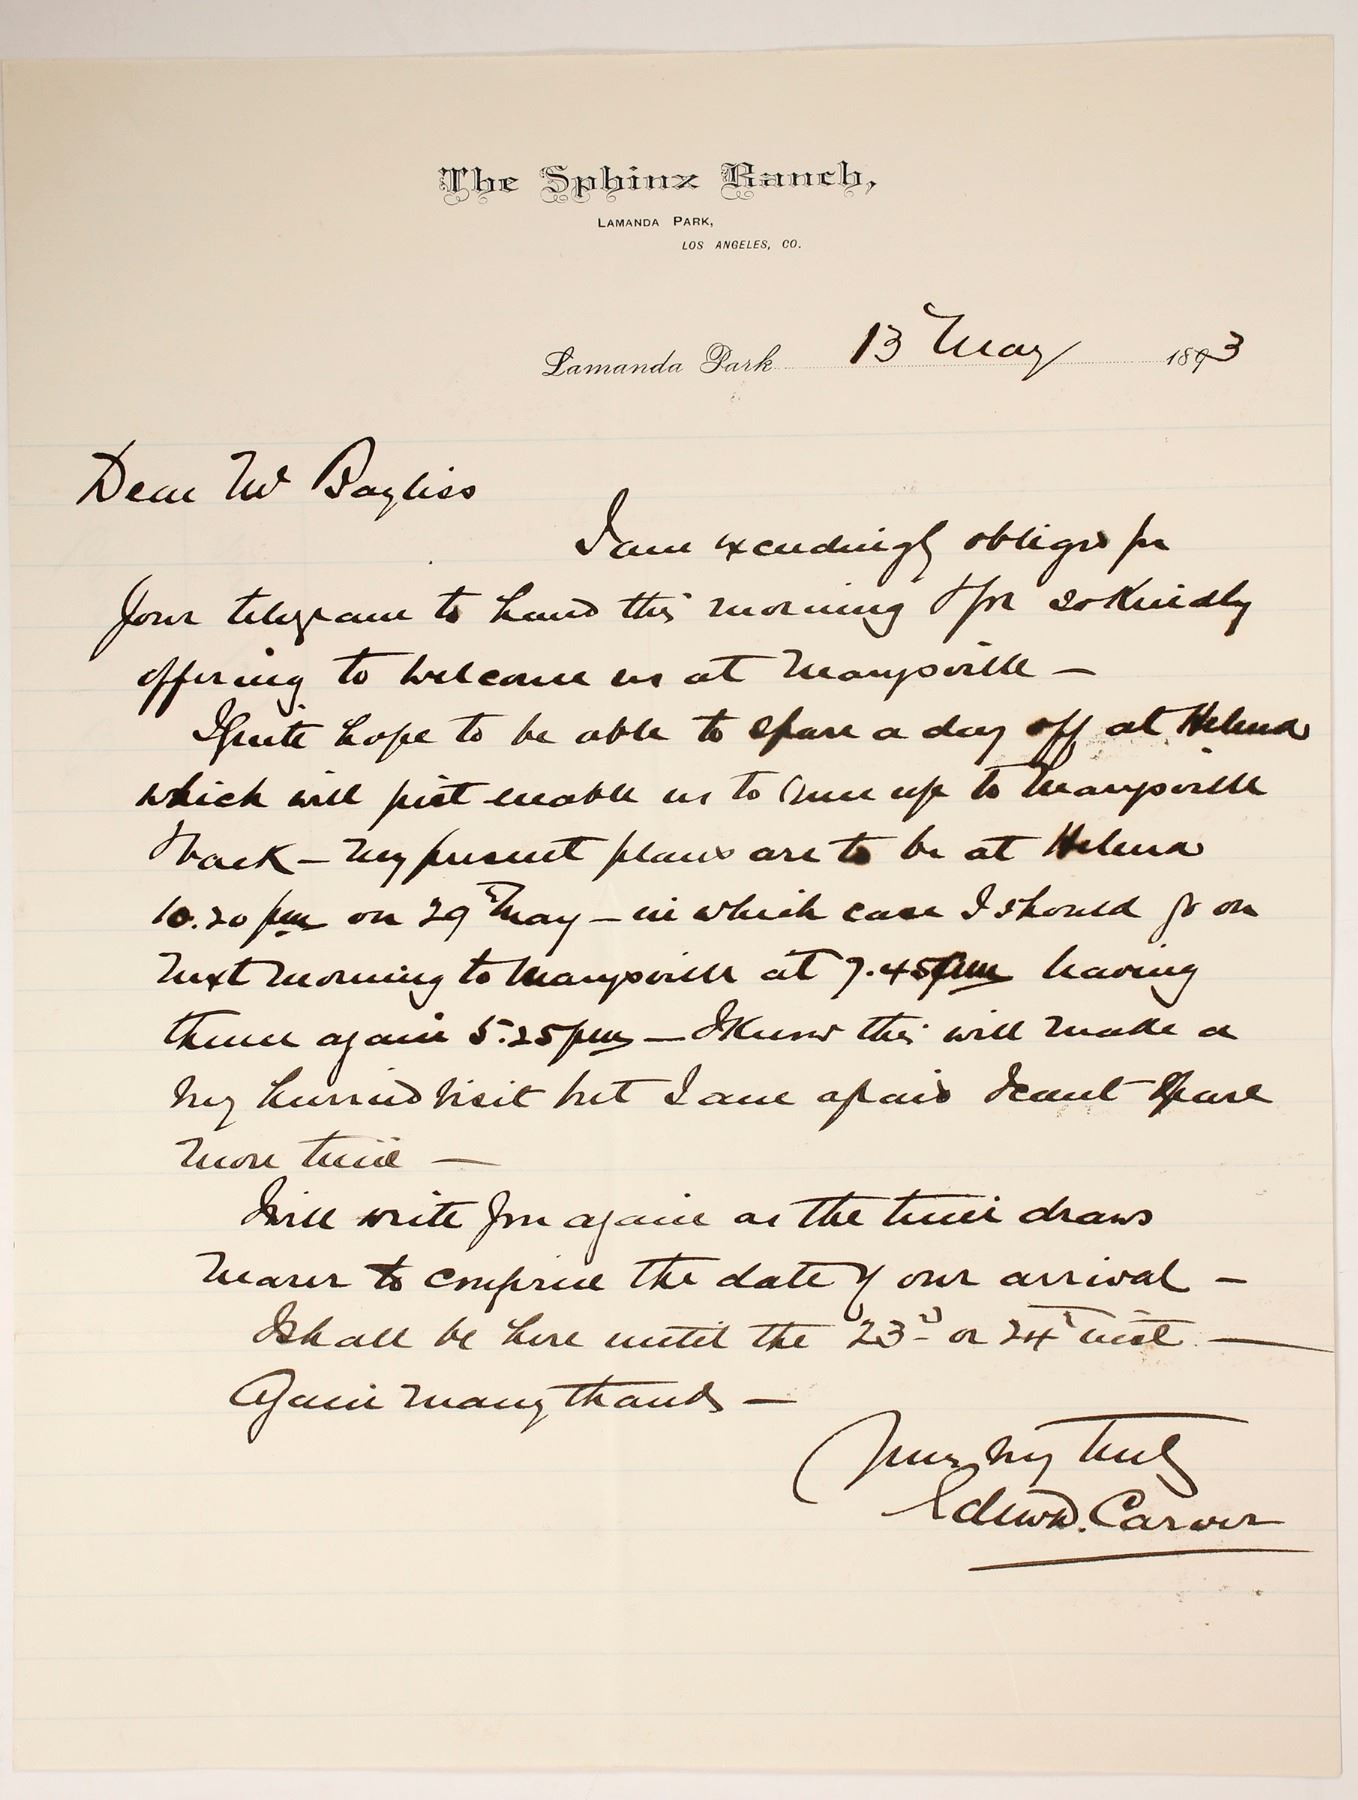 The Sphinx Ranch,
LAMANDA PARK,
LOS ANGELES, CO.
Lamanda Park 13th May 1893
Dear Mr Bayliss
I am exceedingly obliged for
your telegram to hand this morning & for so kindly
offering to welcome us at Marysville —
I quite hope to be able to spare a day off at Helena
which will just enable us to run up to Marysville
& back — My present plans are to be at Helena
10.20 pm on 29th May — in which case I should go on
next morning to Marysville at 7.45 leaving
there again 5.25 pm — I know this will make a
very hurried visit but I am afraid I cant spare
more time —
I will write you again as the time draws
nearer to comprise the date of our arrival —
I shall be here until the 23rd or 24th inst. —
Again many thanks —
Yours very truly
Edmd. Carver